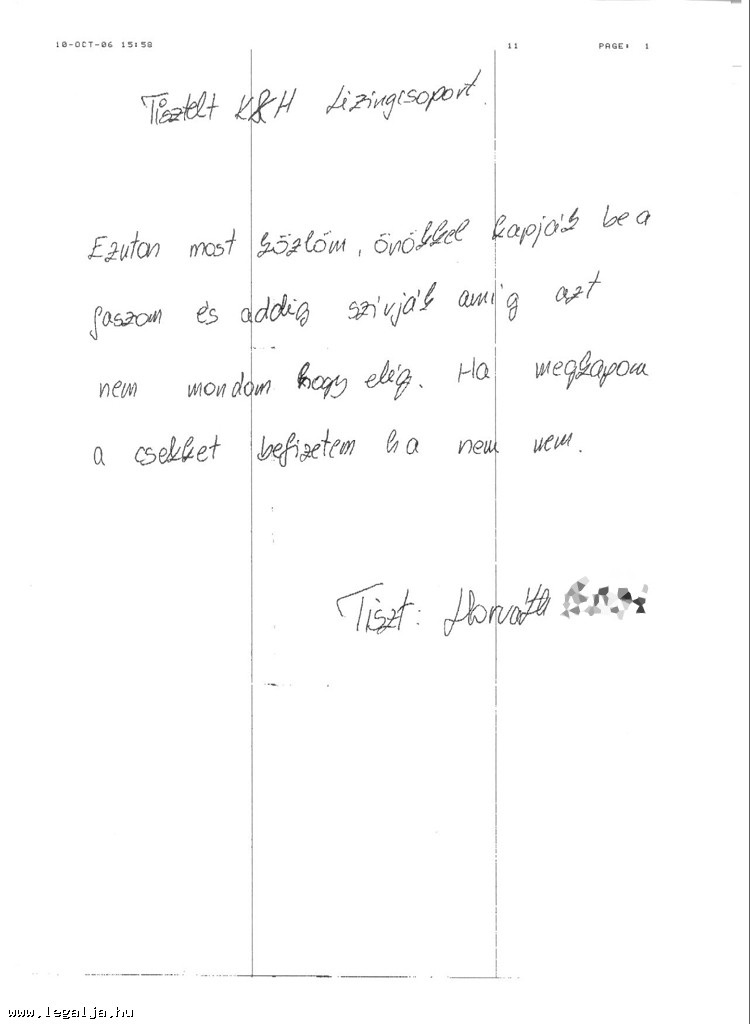 10-OCT-06 15:58 11 PAGE: 1
Tisztelt K&H Lizingcsoport.
Ezuton most közlöm, önökkel kapják be a
faszom és addig szívják amíg azt
nem mondom hogy elég. Ha megkapom
a csekket befizetem ha nem nem.
Tiszt: Horváth
www.legalja.hu